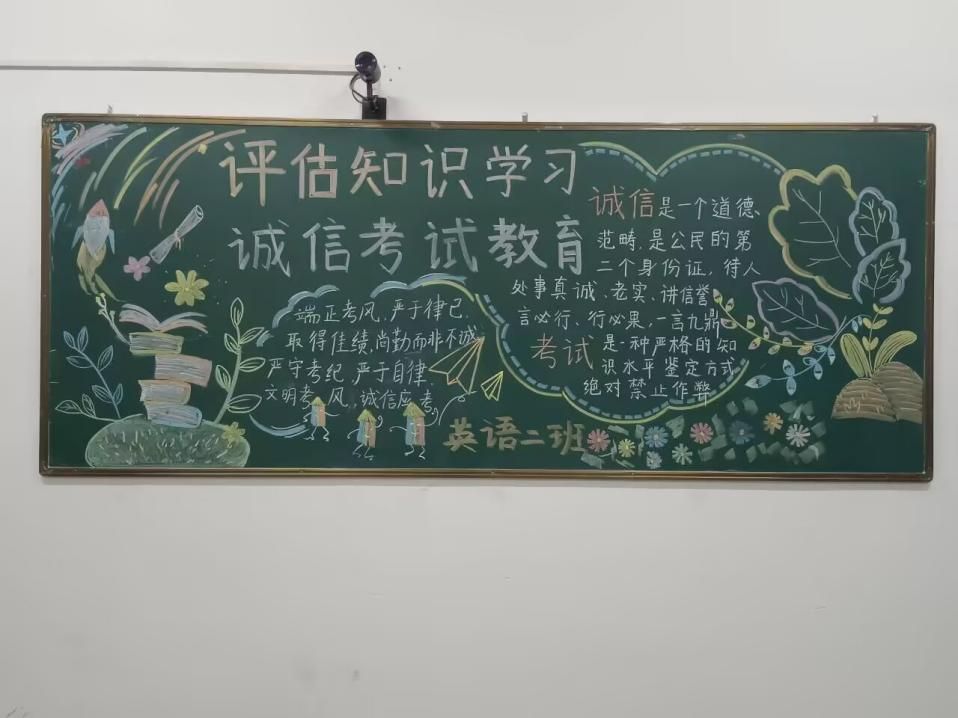 评估知识学习
诚信考试教育
端正考风，严于律己.
取得佳绩,尚勤而非不诚
严守考纪 严于自律.
文明考风,诚信应考
诚信是一个道德
范畴,是公民的第
二个身份证，待人
处事真诚、老实、讲信誉
言必行、行必果，一言九鼎
考试是一种严格的知
识水平鉴定方式
绝对禁止作弊
英语二班